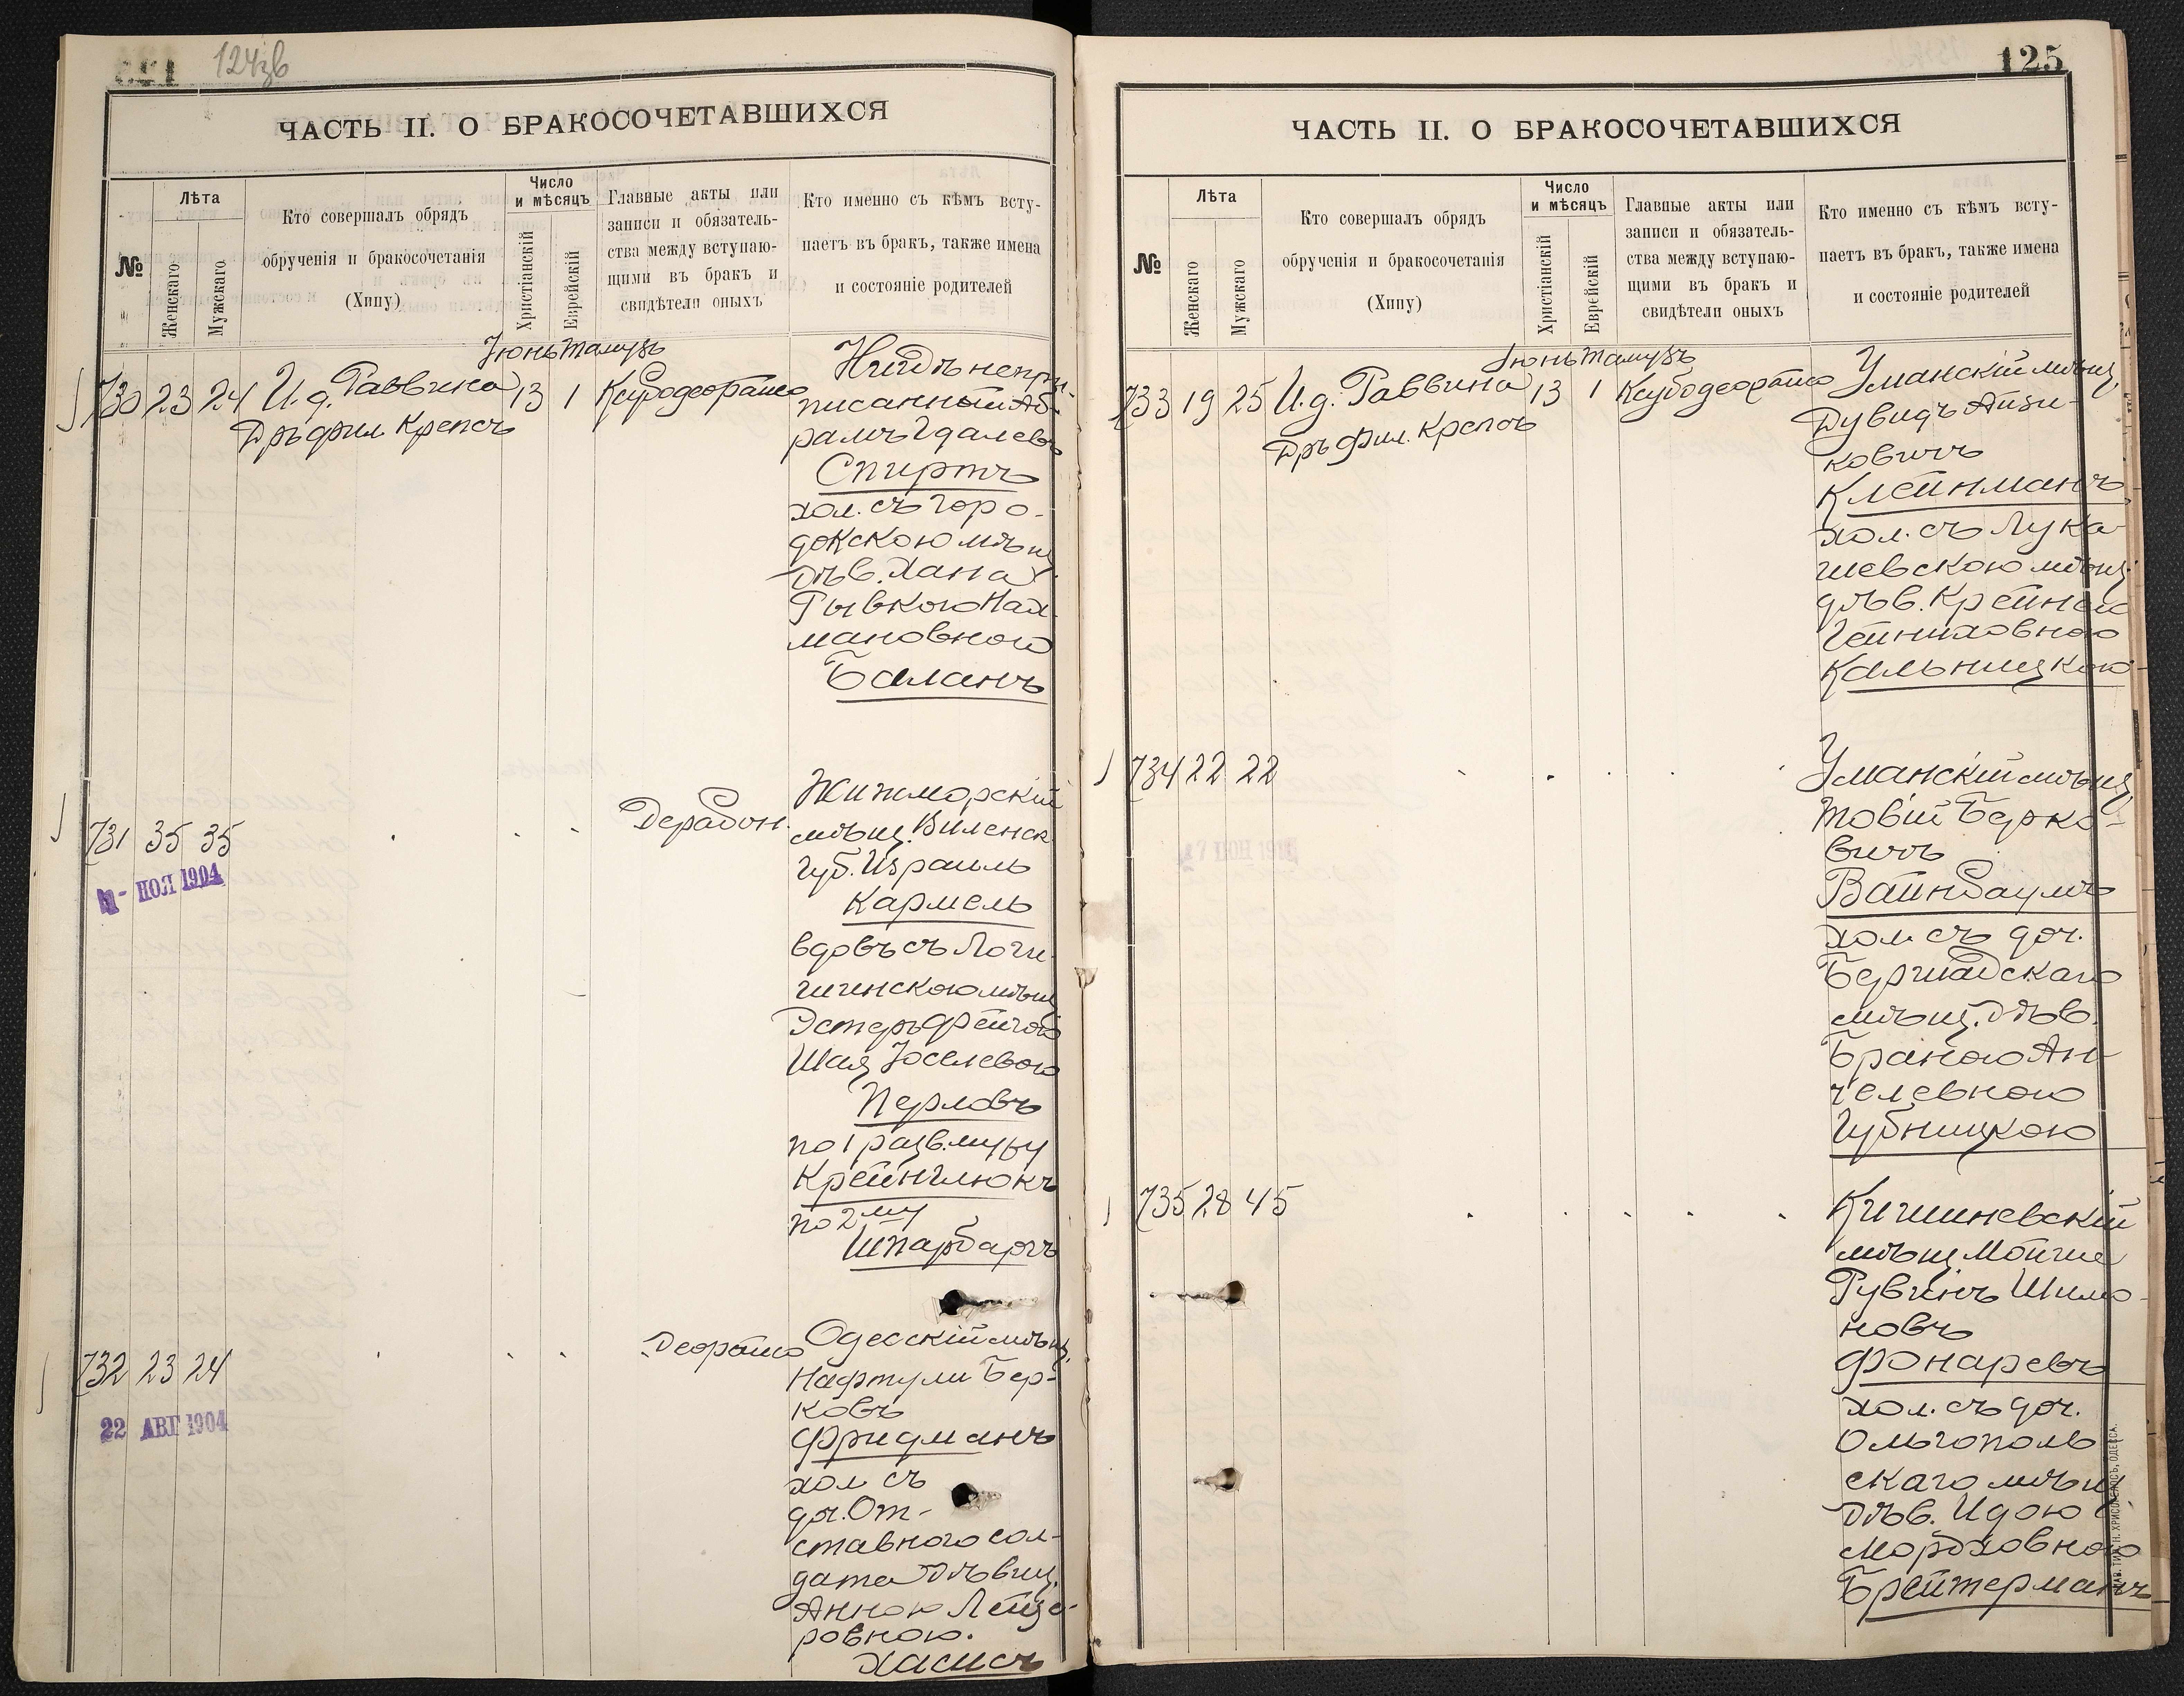 124зв
ЧАСТЬ II. О БРАКОСОЧЕТАВШИХСЯ
№
Лѣта
Женскаго
Мужскаго
Кто совершалъ обрядъ
обрученія и бракосочетанія
(Хипу)
Число
и мѣсяцъ
Христіанскій
Еврейскій
Главные акты или
записи и обязатель-
ства между вступаю-
щими въ бракъ и
свидѣтели оныхъ
Кто именно съ кѣмъ всту-
паетъ въ бракъ, также имена
и состояніе родителей
Іюнь Тамузъ
730 23 24 И. д. Раввина 13 1
Дръ фил Крепсъ
Нигдѣ непри-
писанный Аб-
рамъ Гдалевъ
Спиртъ
хол. съ Горо-
докскою мѣщ
дѣв. Хана
Рывкою Нах-
мановною
Баланъ
731 35 35
1- НОЯ 1904
Жижморскій
мѣщ. Виленск
губ. Израиль
Кармель
вдовъ съ Логи-
шинскою мѣщ
Эстеръ Фейгою
Шая Іоселевою
Перловъ
по 1 разв. мужу
Крейнглюкъ
по 2му
Шпарбаргъ
732 23 24
22 АВГ 1904
Одесскій мѣщ.
Нафтули Бер-
ковъ
Фридманъ
хол съ
доч. От-
ставного сол-
дата дѣвиц.
Анною Лейзе-
ровною.
Хасисъ
125
ЧАСТЬ II. О БРАКОСОЧЕТАВШИХСЯ
№
Лѣта
Женскаго
Мужскаго
Кто совершалъ обрядъ
обрученія и бракосочетанія
(Хипу)
Число
и мѣсяцъ
Христіанскій
Еврейскій
Главные акты или
записи и обязатель-
ства между вступаю-
щими въ бракъ и
свидѣтели оныхъ
Кто именно съ кѣмъ всту-
паетъ въ бракъ, также имена
и состояніе родителей
Іюнь Тамузъ
733 19 25 И. д. Раввина 13 1
Дръ фил. Крепсъ
Уманскій мѣщ.
Дувидъ Айзи-
ковичъ
Клейнманъ
хол. съ Лука-
шевскою мѣщ.
дѣв. Крейною
Гейниховною
Кальницкою
734 22 22
Уманскій мѣщ
Товій Берко-
вичъ
Вайнбаумъ
хол. съ доч.
Бершадскаго
мѣщ. дѣв.
Браною Ан-
челевною
Губницкою
735 28 45
Кишиневскій
мѣщ Мойше
Рувинъ Шимо-
новъ
Фонаревъ
хол. съ доч.
Ольгополь
скаго мѣщ
дѣв. Идою
Мордховною
Брейтерманъ
ТИП. Н. ХРИСОГЕЛОСЪ, ОДЕССА.